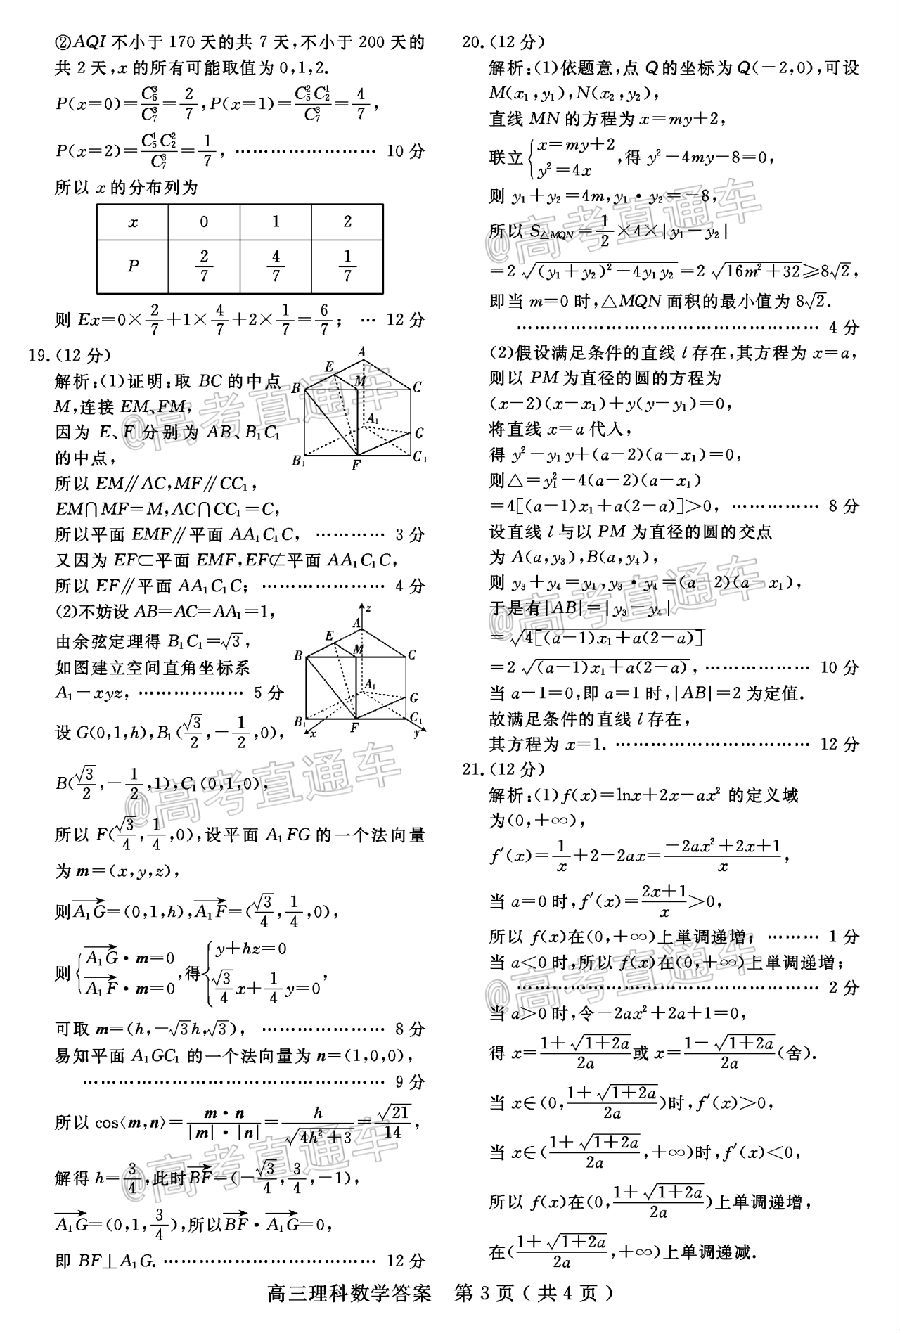 ②AQI 不小于 170 天的共 7 天,不小于 200 天的
共 2 天,x 的所有可能取值为 0,1,2.
P(x=0)=C₅³/C₇³=2/7,P(x=1)=C₅²C₂¹/C₇³=4/7,
P(x=2)=C₅¹C₂²/C₇³=1/7, …………………… 10 分
所以 x 的分布列为
x 0 1 2
P 2/7 4/7 1/7
则 Ex=0×2/7+1×4/7+2×1/7=6/7; … 12 分
19.(12 分)
解析:(1)证明:取 BC 的中点
M,连接 EM、FM,
因为 E、F 分别为 AB、B₁C₁
的中点,
所以 EM∥AC,MF∥CC₁,
EM∩MF=M,AC∩CC₁=C,
所以平面 EMF∥平面 AA₁C₁C, ………… 3 分
又因为 EF⊂平面 EMF,EF⊄平面 AA₁C₁C,
所以 EF∥平面 AA₁C₁C; ………………… 4 分
A
E
B
M
C
A₁
G
B₁
F
C₁
(2)不妨设 AB=AC=AA₁=1,
由余弦定理得 B₁C₁=√3,
如图建立空间直角坐标系
A₁-xyz, ……………… 5 分
z
A
E
B
M
C
A₁
G
B₁
F
C₁
x
y
设 G(0,1,h),B₁(√3/2,-1/2,0),
B(√3/2,-1/2,1),C₁(0,1,0),
所以 F(√3/4,1/4,0),设平面 A₁FG 的一个法向量
为 m=(x,y,z),
则A₁G=(0,1,h),A₁F=(√3/4,1/4,0),
则{A₁G·m=0 A₁F·m=0,得{y+hz=0 √3/4x+1/4y=0,
可取 m=(h,-√3h,√3), ………………… 8 分
易知平面 A₁GC₁ 的一个法向量为 n=(1,0,0),
…………………………………………… 9 分
所以 cos⟨m,n⟩=m·n/|m|·|n|=h/√4h²+3=√21/14,
解得 h=3/4,此时BF=(-√3/4,3/4,-1),
A₁G=(0,1,3/4),所以BF·A₁G=0,
即 BF⊥A₁G. ……………………………… 12 分
20.(12 分)
解析:(1)依题意,点 Q 的坐标为 Q(-2,0),可设
M(x₁,y₁),N(x₂,y₂),
直线 MN 的方程为 x=my+2,
联立{x=my+2 y²=4x,得 y²-4my-8=0,
则 y₁+y₂=4m,y₁·y₂=-8,
所以 S△MQN=1/2×4×|y₁-y₂|
=2√(y₁+y₂)²-4y₁y₂=2√16m²+32≥8√2,
即当 m=0 时,△MQN 面积的最小值为 8√2.
…………………………………………… 4 分
(2)假设满足条件的直线 l 存在,其方程为 x=a,
则以 PM 为直径的圆的方程为
(x-2)(x-x₁)+y(y-y₁)=0,
将直线 x=a 代入,
得 y²-y₁y+(a-2)(a-x₁)=0,
则△=y₁²-4(a-2)(a-x₁)
=4[(a-1)x₁+a(2-a)]>0, …………… 8 分
设直线 l 与以 PM 为直径的圆的交点
为 A(a,y₃),B(a,y₄),
则 y₃+y₄=y₁,y₃·y₄=(a-2)(a-x₁),
于是有|AB|=|y₃-y₄|
=√4[(a-1)x₁+a(2-a)]
=2√(a-1)x₁+a(2-a), ……………… 10 分
当 a-1=0,即 a=1 时,|AB|=2 为定值.
故满足条件的直线 l 存在,
其方程为 x=1. …………………………… 12 分
21.(12 分)
解析:(1)f(x)=lnx+2x-ax² 的定义域
为(0,+∞),
f′(x)=1/x+2-2ax=-2ax²+2x+1/x,
当 a=0 时,f′(x)=2x+1/x>0,
所以 f(x)在(0,+∞)上单调递增; ……… 1 分
当 a<0 时,所以 f(x)在(0,+∞)上单调递增;
…………………………………………… 2 分
当 a>0 时,令-2ax²+2a+1=0,
得 x=1+√1+2a/2a或 x=1-√1+2a/2a(舍).
当 x∈(0,1+√1+2a/2a)时,f′(x)>0,
当 x∈(1+√1+2a/2a,+∞)时,f′(x)<0,
所以 f(x)在(0,1+√1+2a/2a)上单调递增,
在(1+√1+2a/2a,+∞)上单调递减.
@高考直通车
@高考直通车
@高考直通车
@高考直通车
@高考直通车
@高考直通车
高三理科数学答案 第 3 页(共 4 页)